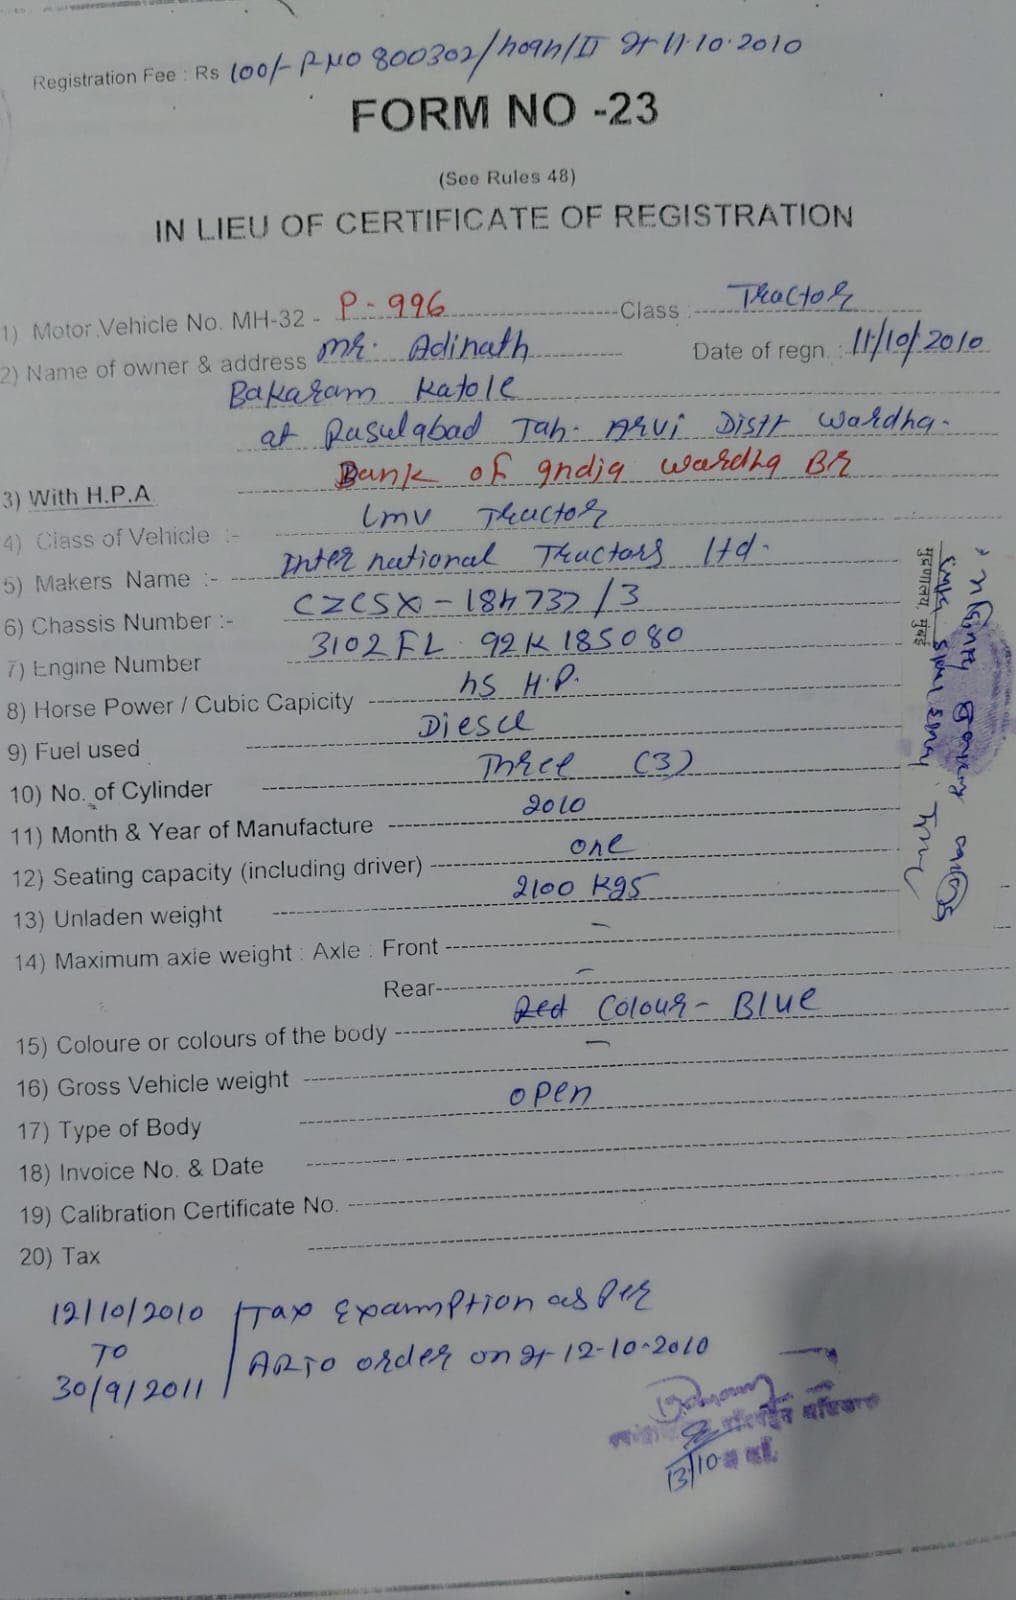 Registration Fee : Rs 100/- RNO 800302/ /II dt 11.10.2010
FORM NO -23
(See Rules 48)
IN LIEU OF CERTIFICATE OF REGISTRATION
1) Motor Vehicle No. MH-32 - P-996 Class : Tractor
2) Name of owner & address Mr. Adinath Date of regn. : 11/10/2010
Bakaram Katole
at Rasulabad Tah. Arvi Distt Wardha.
3) With H.P.A Bank of India Wardha BR
4) Class of Vehicle :- LMV Tractor
5) Makers Name :- International Tractors Ltd.
6) Chassis Number :-
7) Engine Number 3102FL 92K185080
8) Horse Power / Cubic Capicity H.P.
9) Fuel used Diesel
10) No. of Cylinder Three (3)
11) Month & Year of Manufacture 2010
12) Seating capacity (including driver) one
13) Unladen weight 2100 Kgs
14) Maximum axie weight : Axle : Front -
Rear -
15) Coloure or colours of the body Red Colour - Blue
16) Gross Vehicle weight -
17) Type of Body open
18) Invoice No. & Date
19) Calibration Certificate No.
20) Tax
12/10/2010 Tax Examption as Per
TO
30/9/2011 ARTO order on dt 12-10-2010
13/10
मुद्रणालय, मुंबई